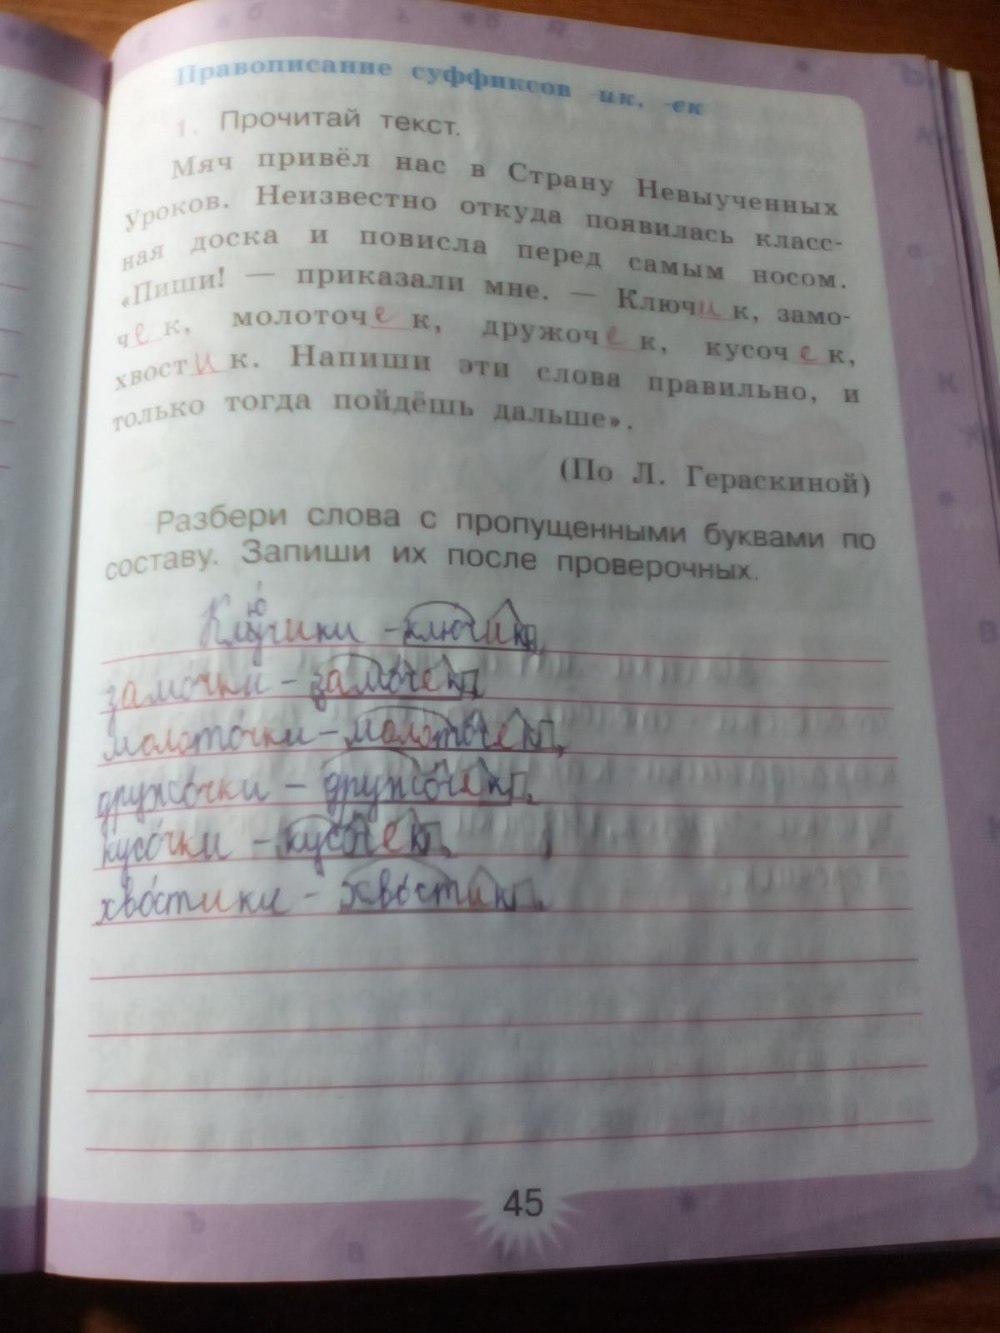 Правописание суффиксов -ик, -ек
1. Прочитай текст.
Мяч привёл нас в Страну Невыученных
Уроков. Неизвестно откуда появилась класс-
ная доска и повисла перед самым носом.
«Пиши! — приказали мне. — Ключик, замо-
чек, молоточек, дружочек, кусочек,
хвостик. Напиши эти слова правильно, и
только тогда пойдёшь дальше».
(По Л. Гераскиной)
Разбери слова с пропущенными буквами по
составу. Запиши их после проверочных.
Ключики - ключик,
замочки - замочек,
молоточки - молоточек,
дружочки - дружочек,
кусочки - кусочек,
хвостики - хвостик.
45